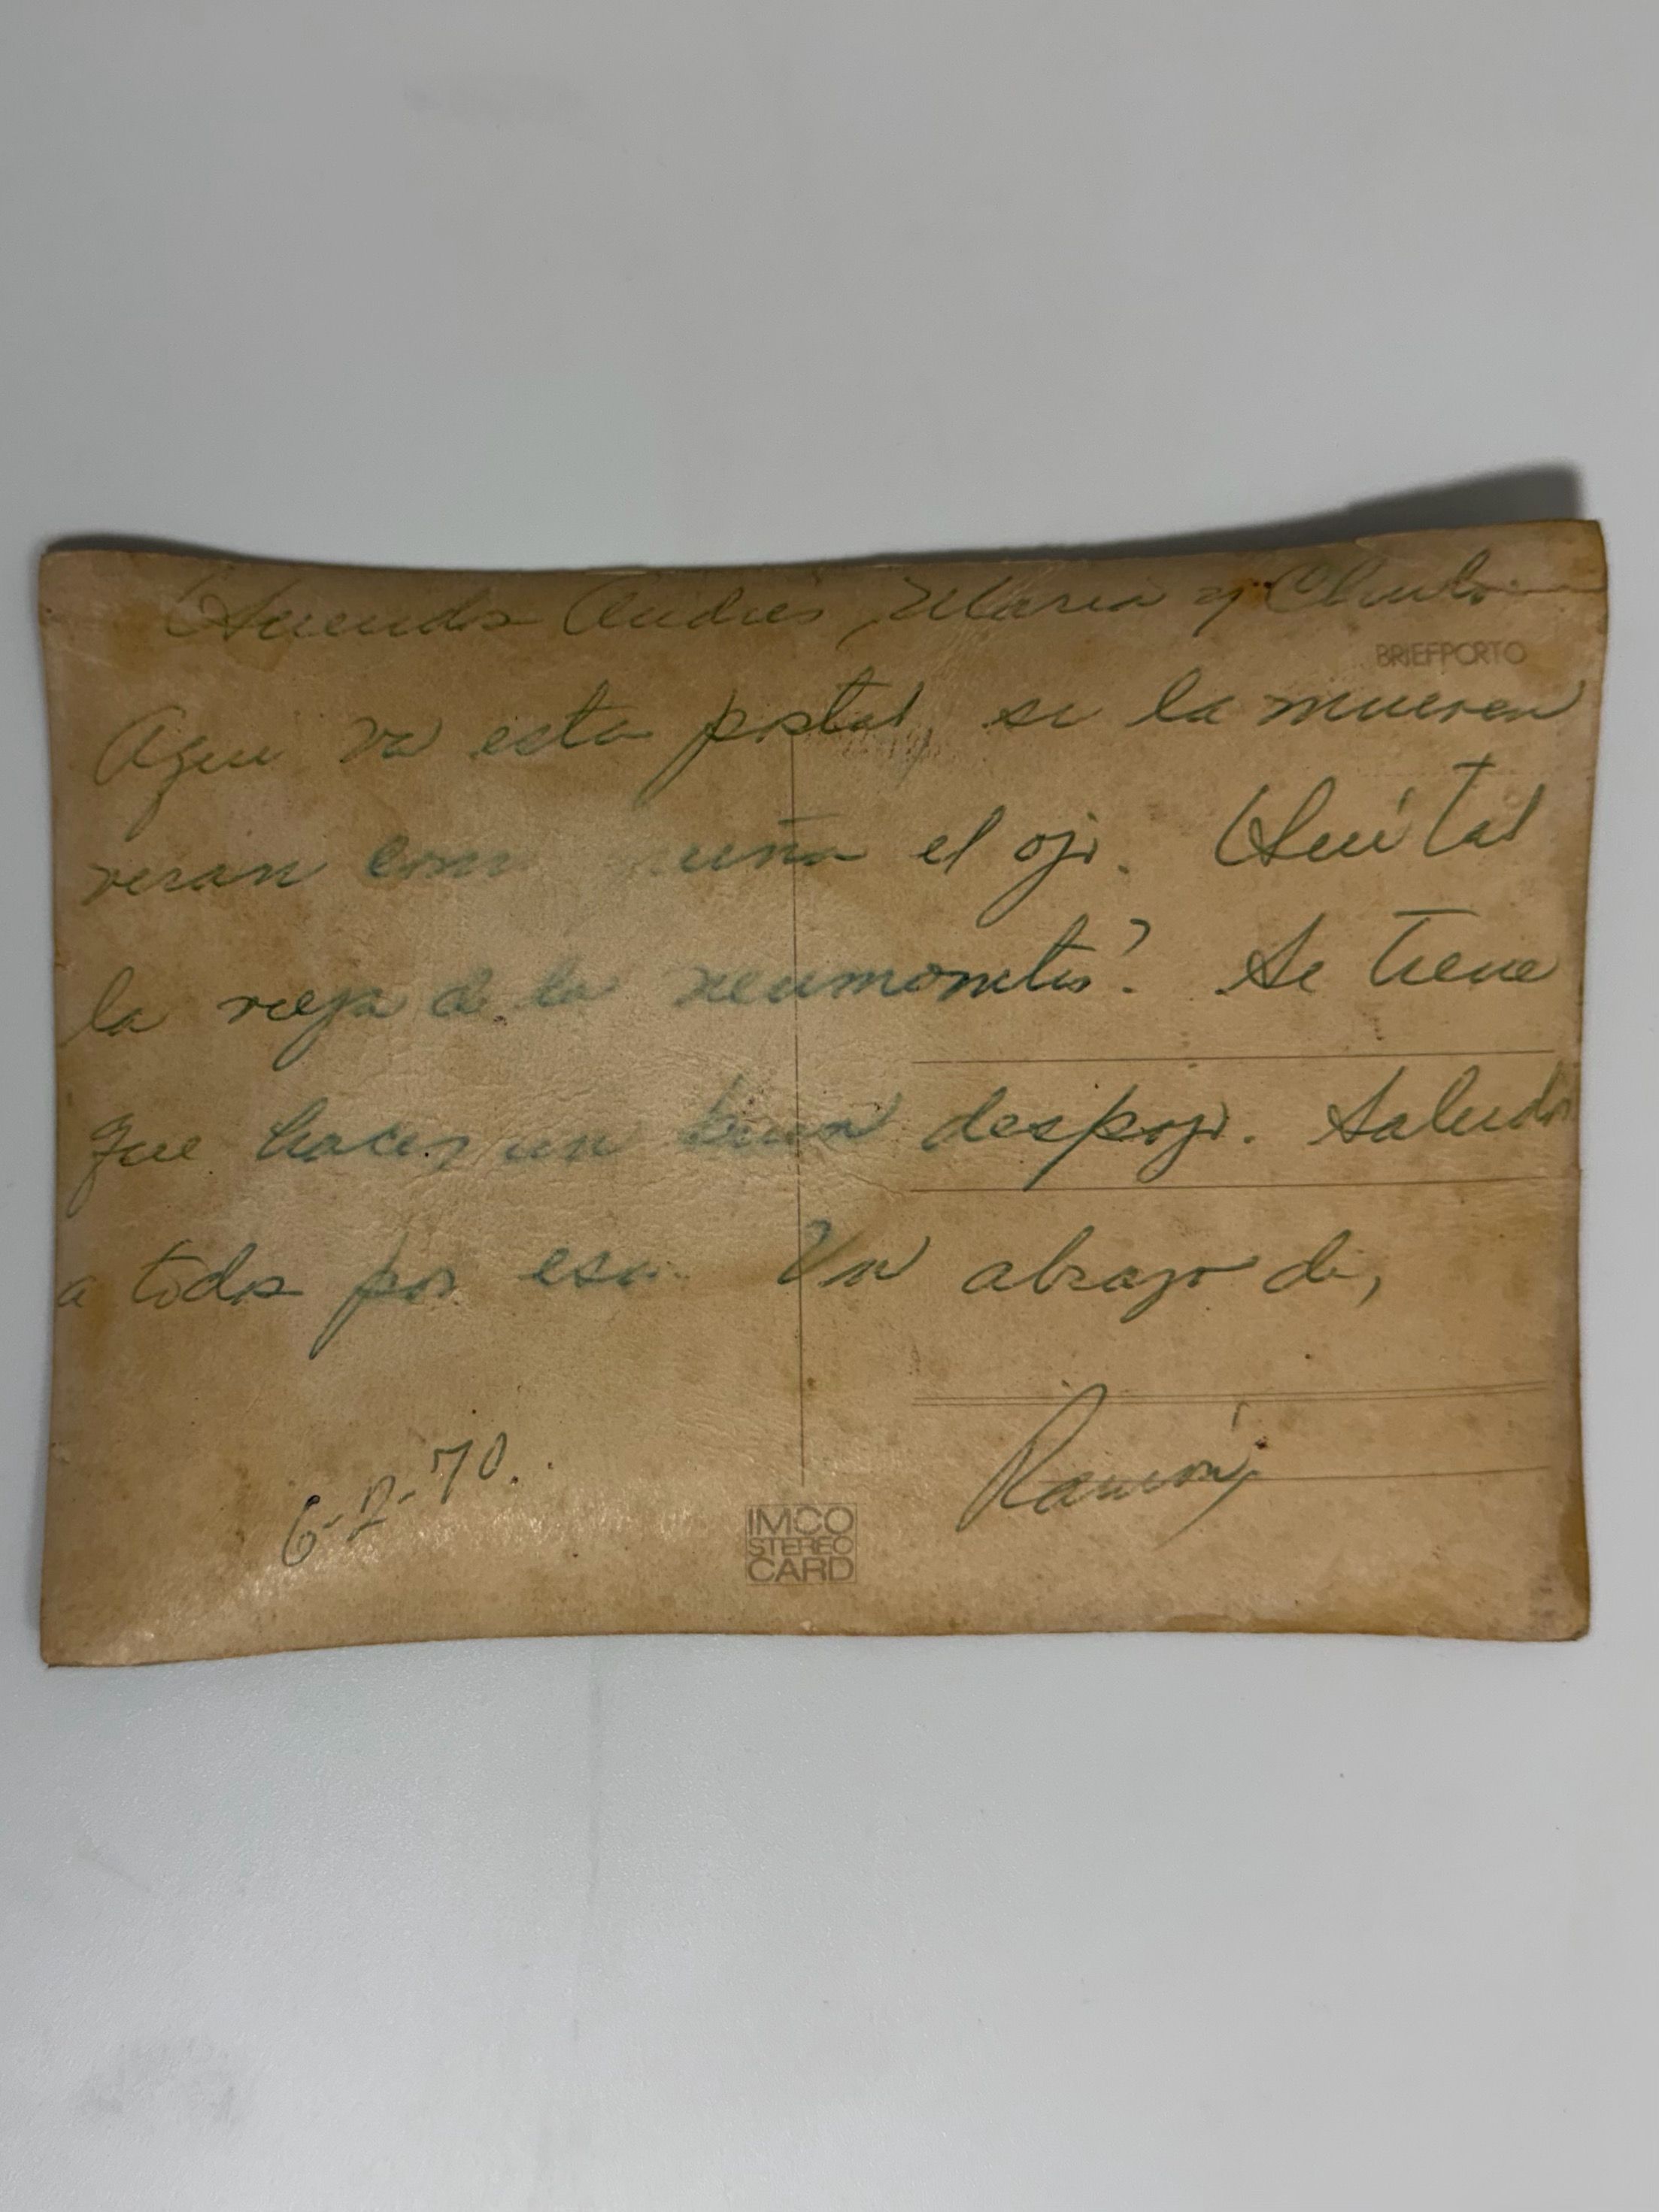 Queridos Andrés, Maria y Chulo
BRIEFPORTO
Aqui va esta postal, si la mueven
veran como guiña el ojo. Qué tal
la vieja de la neumonitis? Se tiene
que hacer un buen despojo. Saludos
a todos por esa. Un abrazo de,
Ramón
6-2-70.
IMCO
STEREO
CARD